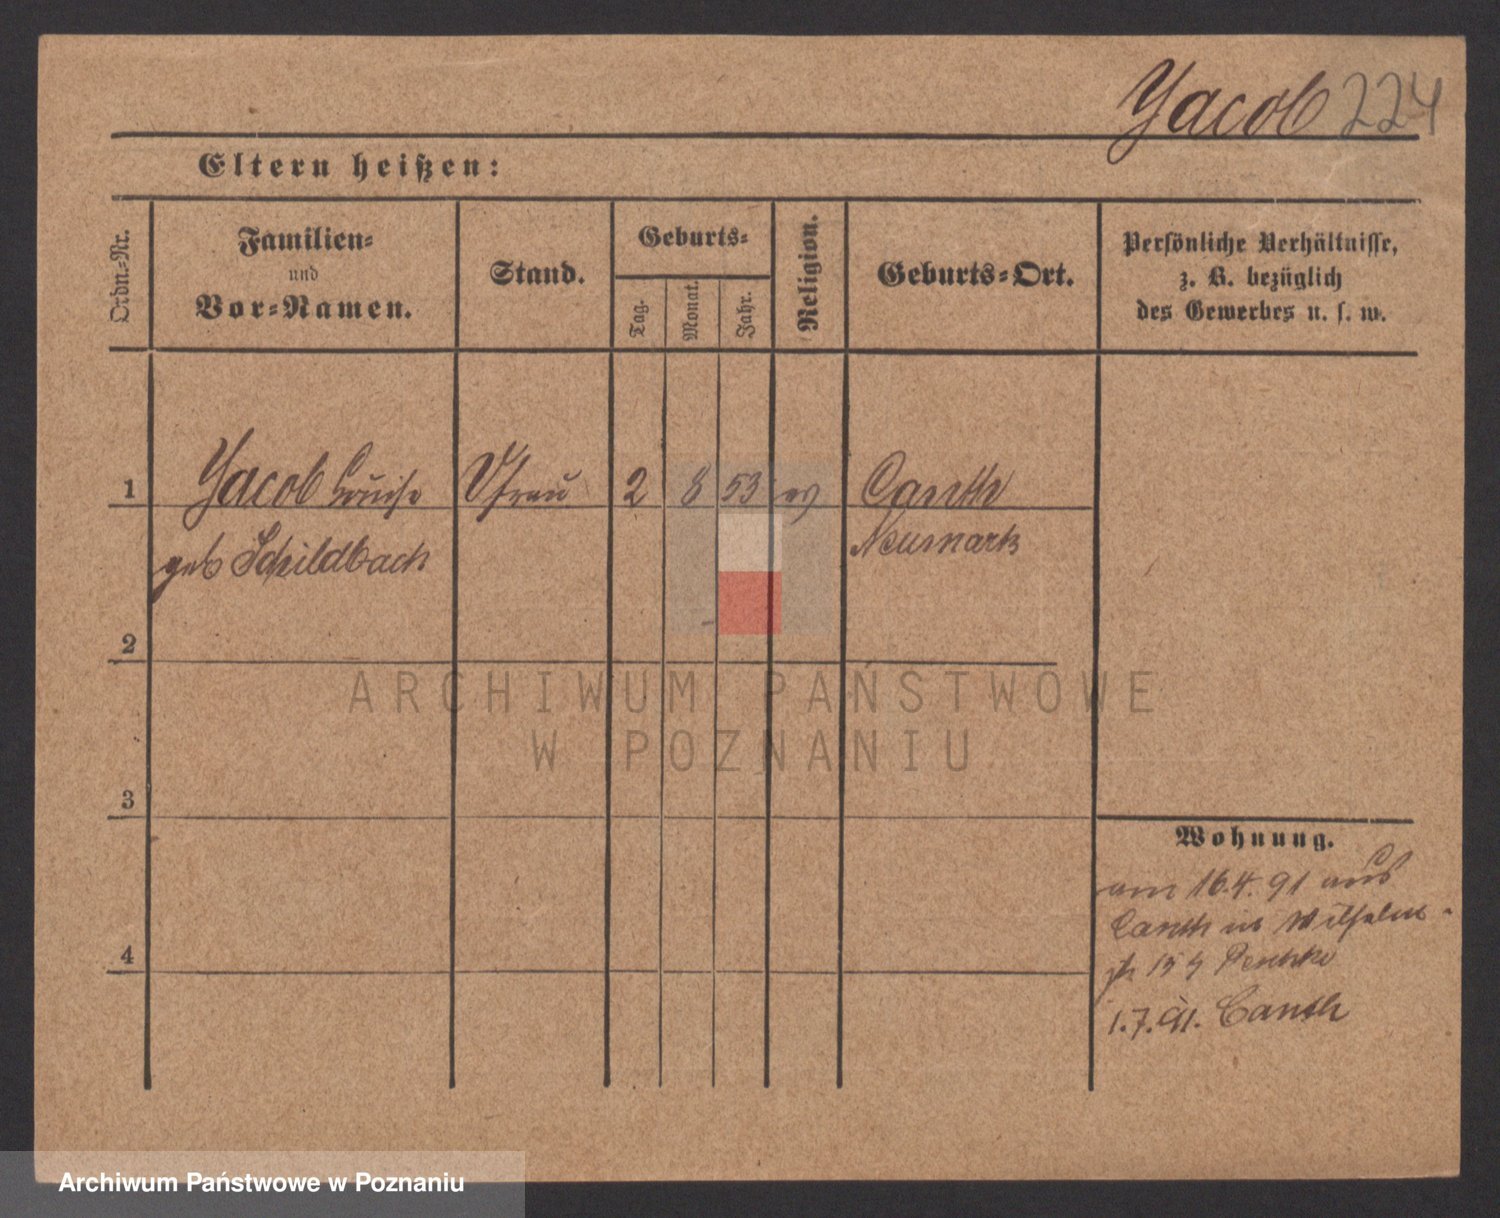 Yacob 224
Eltern heißen:
Ordn.-Nr.
Familien-
und
Vor-Namen.
Stand.
Geburts-
Tag.
Monat.
Jahr.
Religion.
Geburts-Ort.
Persönliche Verhältnisse,
z. B. bezüglich
des Gewerbes u. s. w.
1 Yacob Louise Frau 2 8 53 ev Canth
geb Schildbach Neumark
2
3
4
Wohnung.
am 16.4.91 aus
Canth in Wilhelm-
str 15
1.7.91. Canth
ARCHIWUM PAŃSTWOWE
W POZNANIU
Archiwum Państwowe w Poznaniu